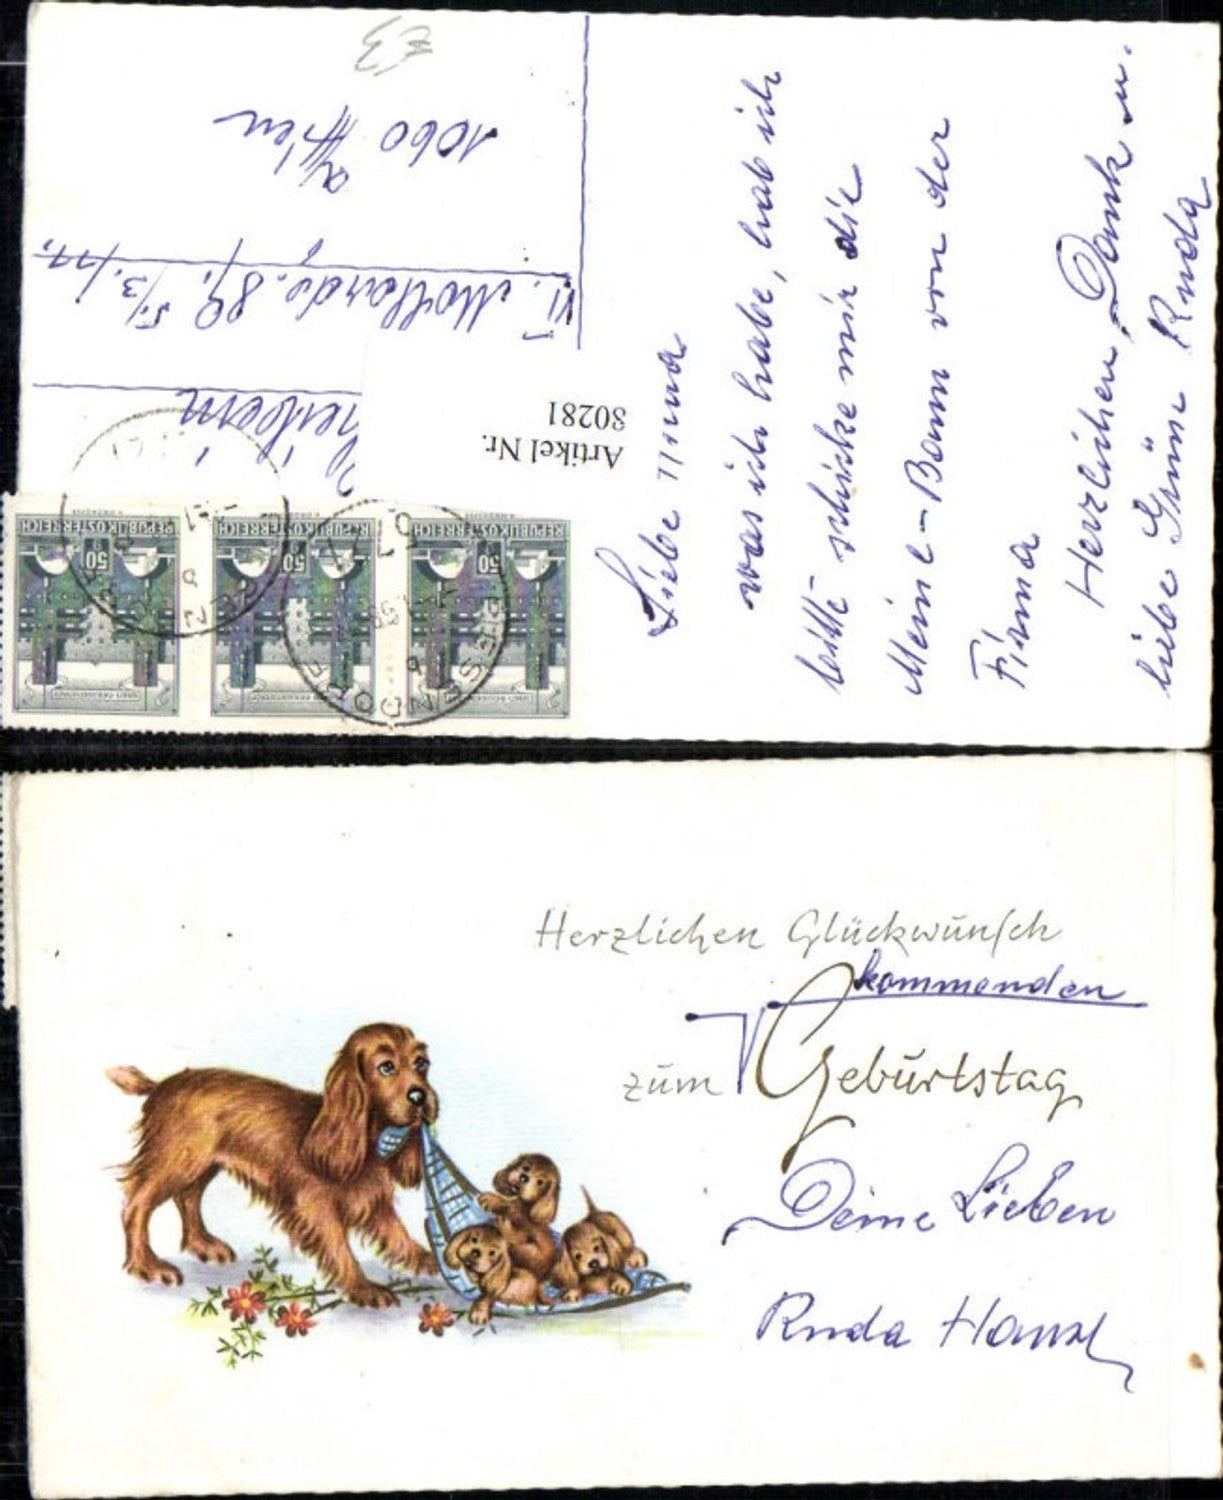 Liebe Mina
was ich habe, hab ich
bitte schicke mir die
Meinl-Bonn von der
Firma
Herzlichen Dank u.
liebe Grüße Ruda
Artikel Nr.
80281
VI. Mollardg. 89, 5./3./11.
1060 Wien
£3
REPUBLIK ÖSTERREICH
50
REPUBLIK ÖSTERREICH
50
REPUBLIK ÖSTERREICH
50
Herzlichen Glückwunsch
kommenden
zum Geburtstag
Deine Lieben
Ruda Hansl